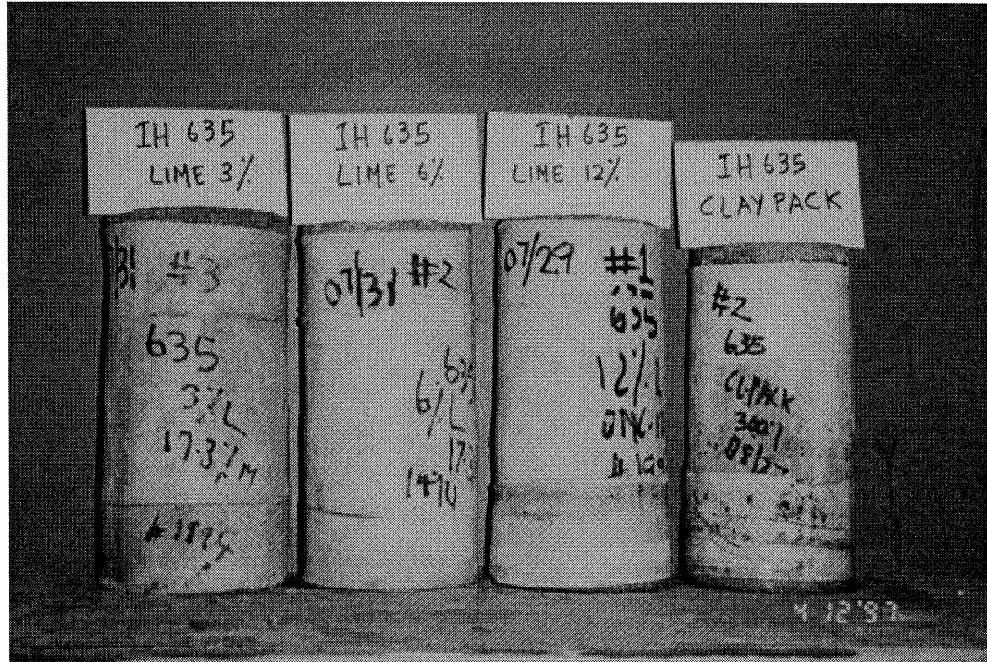 IH 635
LIME 3%
IH 635
LIME 6%
IH 635
LIME 12%
IH 635
CLAY PACK
#3
635
3%L
17.3% M
07/31 #2
635
6%L
1490
07/29 #1
635
12%L
#2
635
CL-PACK
300:1
4 12 '97